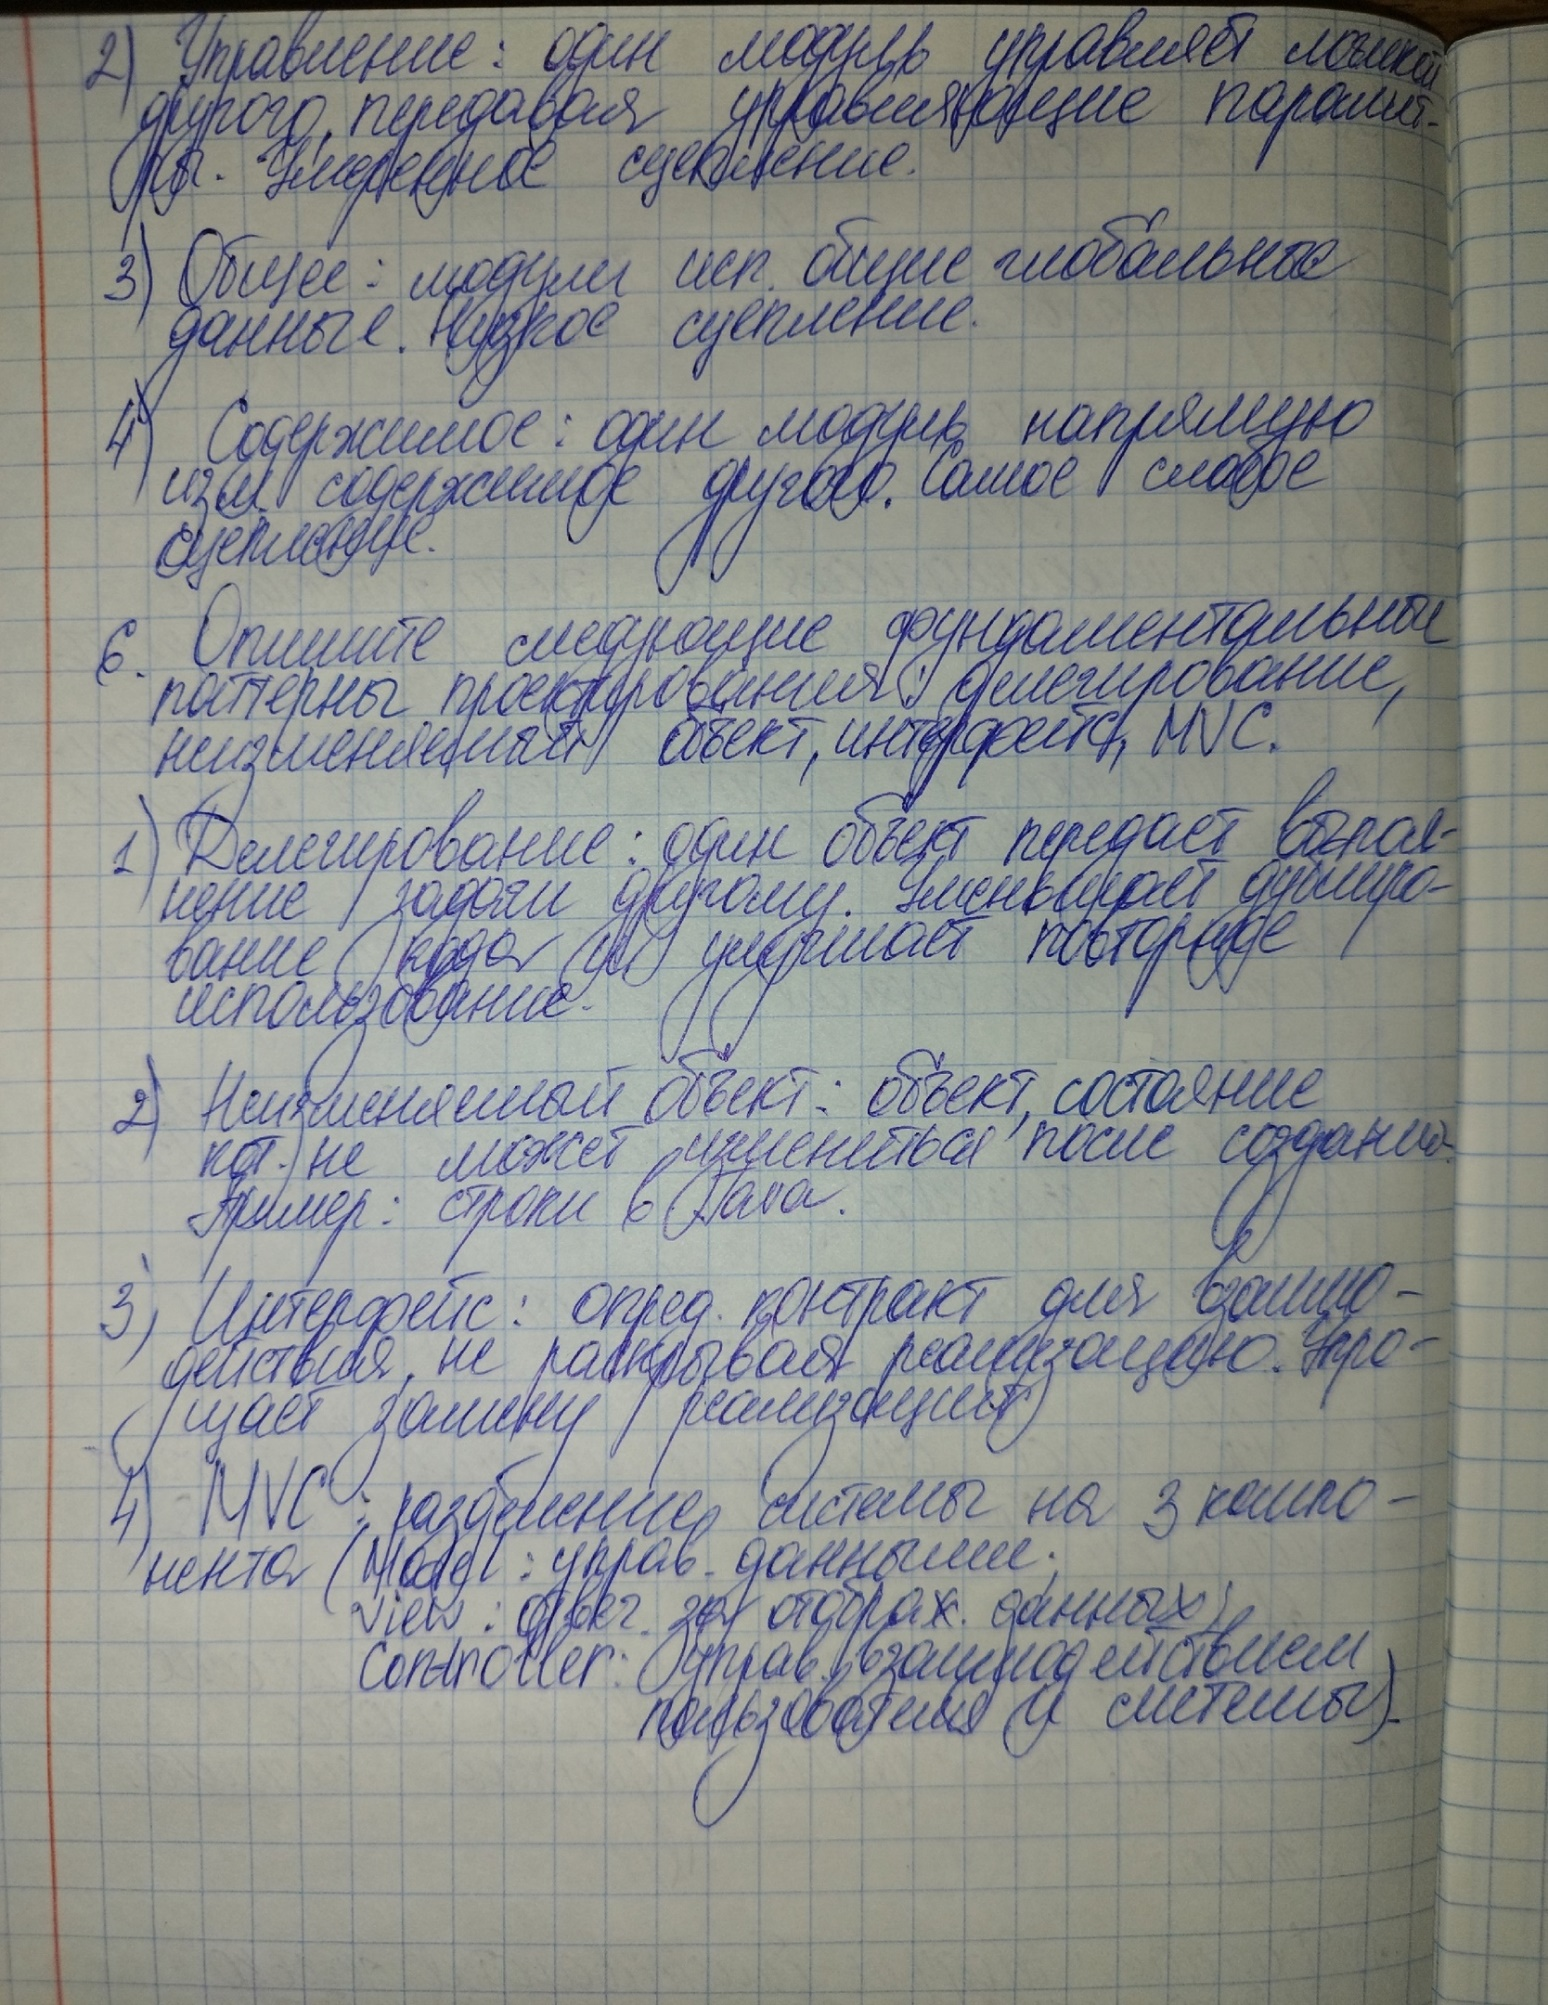 2) Управление: один модуль управляет логикой
другого, передавая управляющие парамет-
ры. Умеренное сцепление.
3) Общее: модули исп. общие глобальные
данные. Низкое сцепление.
4) Содержимое: один модуль напрямую
изм. содержимое другого. Самое слабое
сцепление.
6. Опишите следующие фундаментальные
паттерны проектирования: делегирование,
неизменяемый объект, интерфейс, MVC.
1) Делегирование: один объект передает выпол-
нение задачи другому. Уменьшает дублиро-
вание кода и улучшает повторное
использование.
2) Неизменяемый объект: объект, состояние
кот. не может измениться после создания.
Пример: строки в Java.
3) Интерфейс: опред. контракт для взаимо-
действия, не раскрывая реализацию. Упро-
щает замену реализаций
4) MVC: разделение системы на 3 компо-
нента (Model: управ. данными;
View: отвеч. за отображ. данных;
Controller: управ. взаимодействием
пользователя и системы).